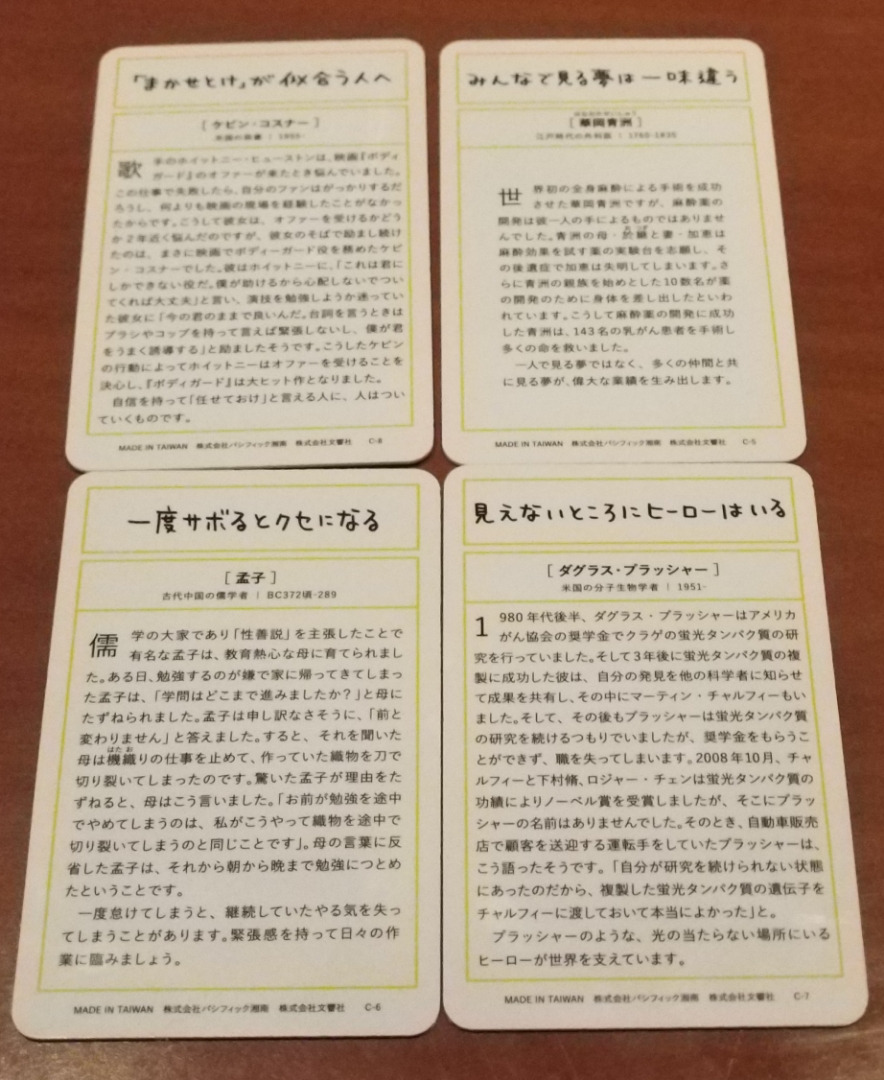 「まかせとけ」が似合う人へ
[ ケビン・コスナー ]
米国の俳優 | 1955-
歌手のホイットニー・ヒューストンは、映画『ボディ
ガード』のオファーが来たとき悩んでいました。
この仕事で失敗したら、自分のファンはがっかりするだ
ろうし、何よりも映画の現場を経験したことがなかっ
たからです。こうして彼女は、オファーを受けるかどう
か2年近く悩んだのですが、彼女のそばで励まし続け
たのは、まさに映画でボディーガード役を務めたケビ
ン・コスナーでした。彼はホイットニーに、「これは君に
しかできない役だ。僕が助けるから心配しないでつい
てくれば大丈夫」と言い、演技を勉強しようか迷ってい
た彼女に「今の君のままで良いんだ。台詞を言うときは
ブラシやコップを持って言えば緊張しないし、僕が君
をうまく誘導する」と励ましたそうです。こうしたケビン
の行動によってホイットニーはオファーを受けることを
決心し、『ボディガード』は大ヒット作となりました。
自信を持って「任せておけ」と言える人に、人はつい
ていくものです。
MADE IN TAIWAN 株式会社パシフィック湘南 株式会社文響社 C-8
みんなで見る夢は一味違う
はなおかせいしゅう
[ 華岡青洲 ]
江戸時代の外科医 | 1760-1835
世界初の全身麻酔による手術を成功
させた華岡青洲ですが、麻酔薬の
開発は彼一人の手によるものではありませ
んでした。青洲の母・於継と妻・加恵は
麻酔効果を試す薬の実験台を志願し、そ
の後遺症で加恵は失明してしまいます。さ
らに青洲の親族を始めとした10数名が薬
の開発のために身体を差し出したといわ
れています。こうして麻酔薬の開発に成功
した青洲は、143名の乳がん患者を手術し
多くの命を救いました。
一人で見る夢ではなく、多くの仲間と共
に見る夢が、偉大な業績を生み出します。
MADE IN TAIWAN 株式会社パシフィック湘南 株式会社文響社 C-5
一度サボるとクセになる
[ 孟子 ]
古代中国の儒学者 | BC372頃-289
儒学の大家であり「性善説」を主張したことで
有名な孟子は、教育熱心な母に育てられまし
た。ある日、勉強するのが嫌で家に帰ってきてしまっ
た孟子は、「学問はどこまで進みましたか?」と母に
たずねられました。孟子は申し訳なさそうに、「前と
変わりません」と答えました。すると、それを聞いた
はた お
母は機織りの仕事を止めて、作っていた織物を刀で
切り裂いてしまったのです。驚いた孟子が理由をた
ずねると、母はこう言いました。「お前が勉強を途中
でやめてしまうのは、私がこうやって織物を途中で
切り裂いてしまうのと同じことです」。母の言葉に反
省した孟子は、それから朝から晩まで勉強につとめ
たということです。
一度怠けてしまうと、継続していたやる気を失っ
てしまうことがあります。緊張感を持って日々の作
業に臨みましょう。
MADE IN TAIWAN 株式会社パシフィック湘南 株式会社文響社 C-6
見えないところにヒーローはいる
[ ダグラス・プラッシャー ]
米国の分子生物学者 | 1951-
1980年代後半、ダグラス・プラッシャーはアメリカ
がん協会の奨学金でクラゲの蛍光タンパク質の研
究を行っていました。そして3年後に蛍光タンパク質の複
製に成功した彼は、自分の発見を他の科学者に知らせ
て成果を共有し、その中にマーティン・チャルフィーもい
ました。そして、その後もプラッシャーは蛍光タンパク質
の研究を続けるつもりでいましたが、奨学金をもらうこ
とができず、職を失ってしまいます。2008年10月、チャ
ルフィーと下村脩、ロジャー・チェンは蛍光タンパク質の
功績によりノーベル賞を受賞しましたが、そこにプラッ
シャーの名前はありませんでした。そのとき、自動車販売
店で顧客を送迎する運転手をしていたプラッシャーは、
こう語ったそうです。「自分が研究を続けられない状態
にあったのだから、複製した蛍光タンパク質の遺伝子を
チャルフィーに渡しておいて本当によかった」と。
プラッシャーのような、光の当たらない場所にいる
ヒーローが世界を支えています。
MADE IN TAIWAN 株式会社パシフィック湘南 株式会社文響社 C-7